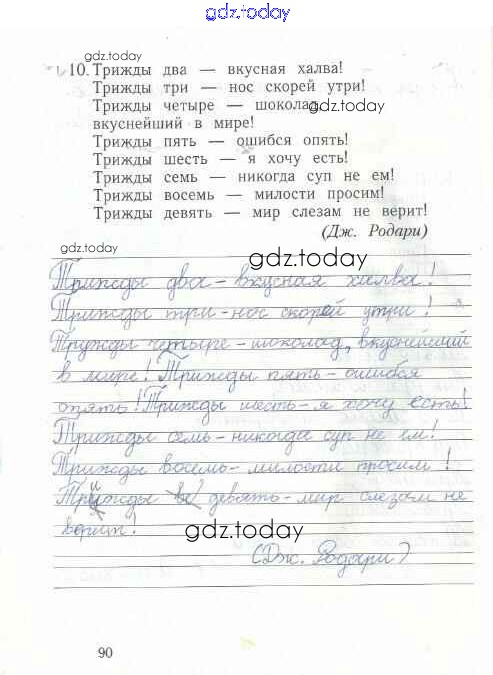 gdz.today
gdz.today
10. Трижды два — вкусная халва!
Трижды три — нос скорей утри!
Трижды четыре — шоколад,
gdz.today
вкуснейший в мире!
Трижды пять — ошибся опять!
Трижды шесть — я хочу есть!
Трижды семь — никогда суп не ем!
Трижды восемь — милости просим!
Трижды девять — мир слезам не верит!
(Дж. Родари)
gdz.today
gdz.today
Трижды два - вкусная халва!
Трижды три - нос скорей утри!
Трижды четыре - шоколад, вкуснейший
в мире! Трижды пять - ошибся
опять! Трижды шесть - я хочу есть!
Трижды семь - никогда суп не ем!
Трижды восемь - милости просим!
Трижды во девять - мир слезам не
верит!
gdz.today
(Дж. Родари)
90
gdz.today